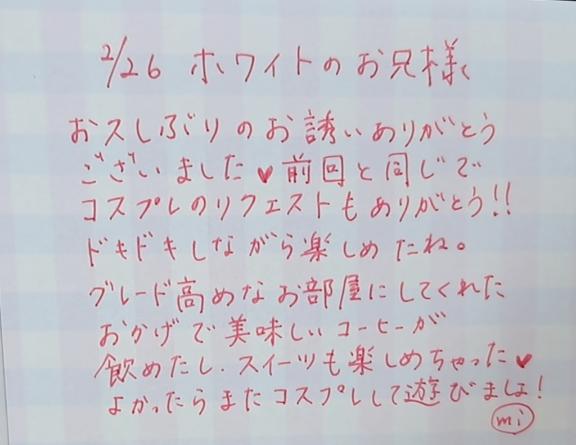 2/26 ホワイトのお兄様
おスしぶりのお誘いありがとう
ございました♥前回と同じで
コスプレのリクエストもありがとう!!
ドキドキしながら楽しめたね。
グレード高めなお部屋にしてくれた
おかげで美味しいコーヒーが
飲めたし、スイーツも楽しめちゃった♥
よかったらまたコスプレして遊びましょ!
mi